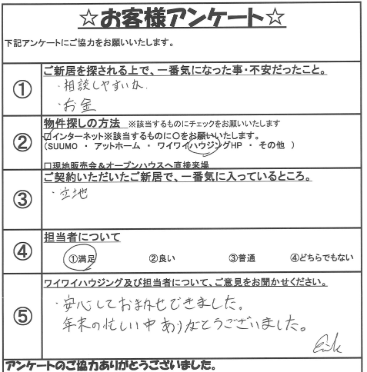 ☆お客様アンケート☆
下記アンケートにご協力をお願いいたします。
① ご新居を探される上で、一番気になった事・不安だったこと。
・相談しやすいか
・お金
② 物件探しの方法 ※該当するものにチェックをお願いいたします
☑インターネット※該当するものに〇をお願いいたします。
(SUUMO ・ アットホーム ・ ワイワイハウジングHP ・ その他 )
□現地販売会&オープンハウスへ直接来場
③ ご契約いただいたご新居で、一番気に入っているところ。
・立地
④ 担当者について
①満足 ②良い ③普通 ④どちらでもない
⑤ ワイワイハウジング及び担当者について、ご意見をお聞かせください。
・安心しておまかせできました。
年末の忙しい中ありがとうございました。
アンケートのご協力ありがとうございました。